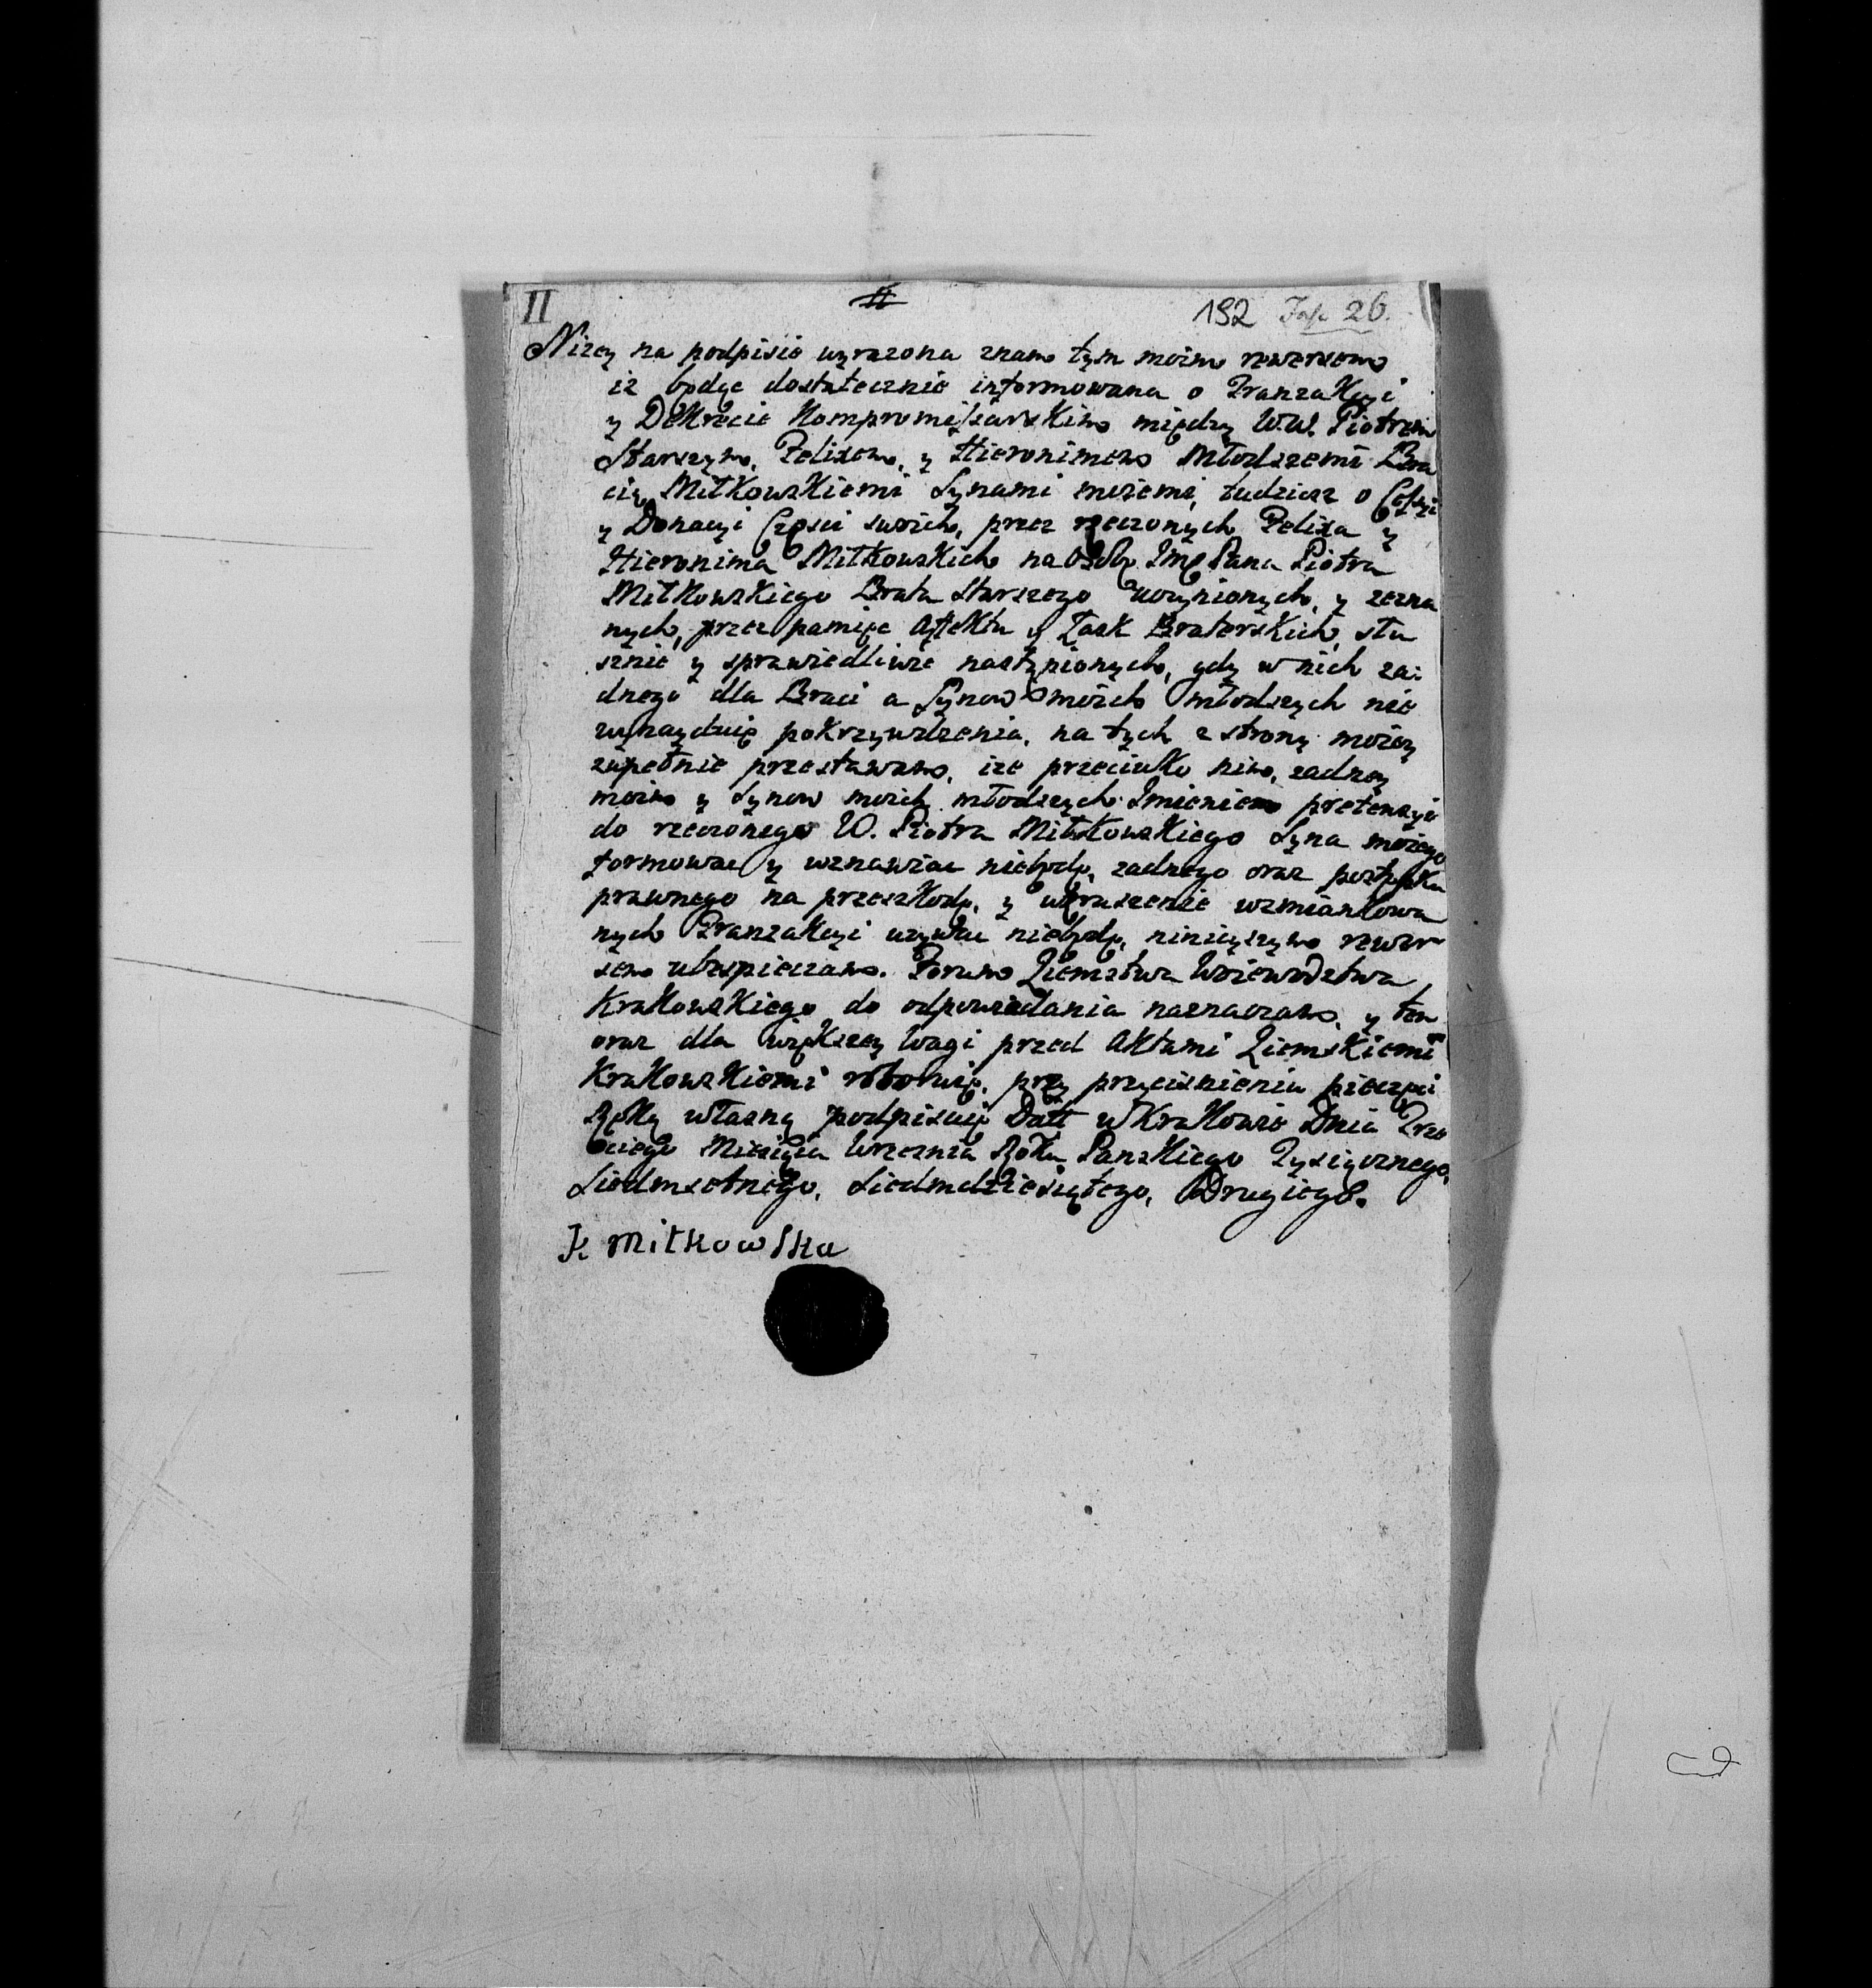 II 192 Fasc. 26.
Nizey na podpisie wyrazona znam tym moim rewersem
iz będąc dostatecznie informowana o Tranzakcyi
y Dekrecie Kompromissarskim między W.W. Piotrem
Starszym, Felixem, y Hieronimem Młodszemi Bra
cią Miłkowskiemi Synami moiemi, tudziesz o Cessyi
y Donacyi Częsci swoich, przez rzeczonych Felixa y
Hieronima Miłkowskich na Osobę Imę Pana Piotra
Miłkowskiego Brata Starszego uczynionych, y zezna
nych, przez pamięc affektu y Łask Braterskich, słu
sznie y sprawiedliwie nastąpionych, gdy w nich za:
dnego dla Braci a Synow moich młodszych nie
wynayduię pokrzywdzenia, na tych z strony moiey
zupełnie przestawam, ize przeciwko nim, zadney
moim y Synow moich młodszych Imieniem pretensyi
do rzeczonego W. Piotra Miłkowskiego Syna moiego
formowac y wznawiac niebędę, zadnego oraz postępku
prawnego na przeszkodę, y wzruszenie wzmiankowa
nych Tranzakcyi uzywac niebędę, ninieyszym rewer
sem ubespieczam. Forum Ziemstwa Woiewodztwa
Krakowskiego do odpowiedania naznaczam, y ten
oraz dla większey wagi przed Aktami Ziemskiemi
Krakowskiemi roboruię, przy przycisnieniu pieczęci
Ręką własną podpisuię Datt w Krakowie Dnia Trze
ciego Miesiąca Wrzesnia Roku Panskiego Tysiącznego,
Siedmsetnego, Siedmdziesiątego, Drugiego.
K Miłkowska